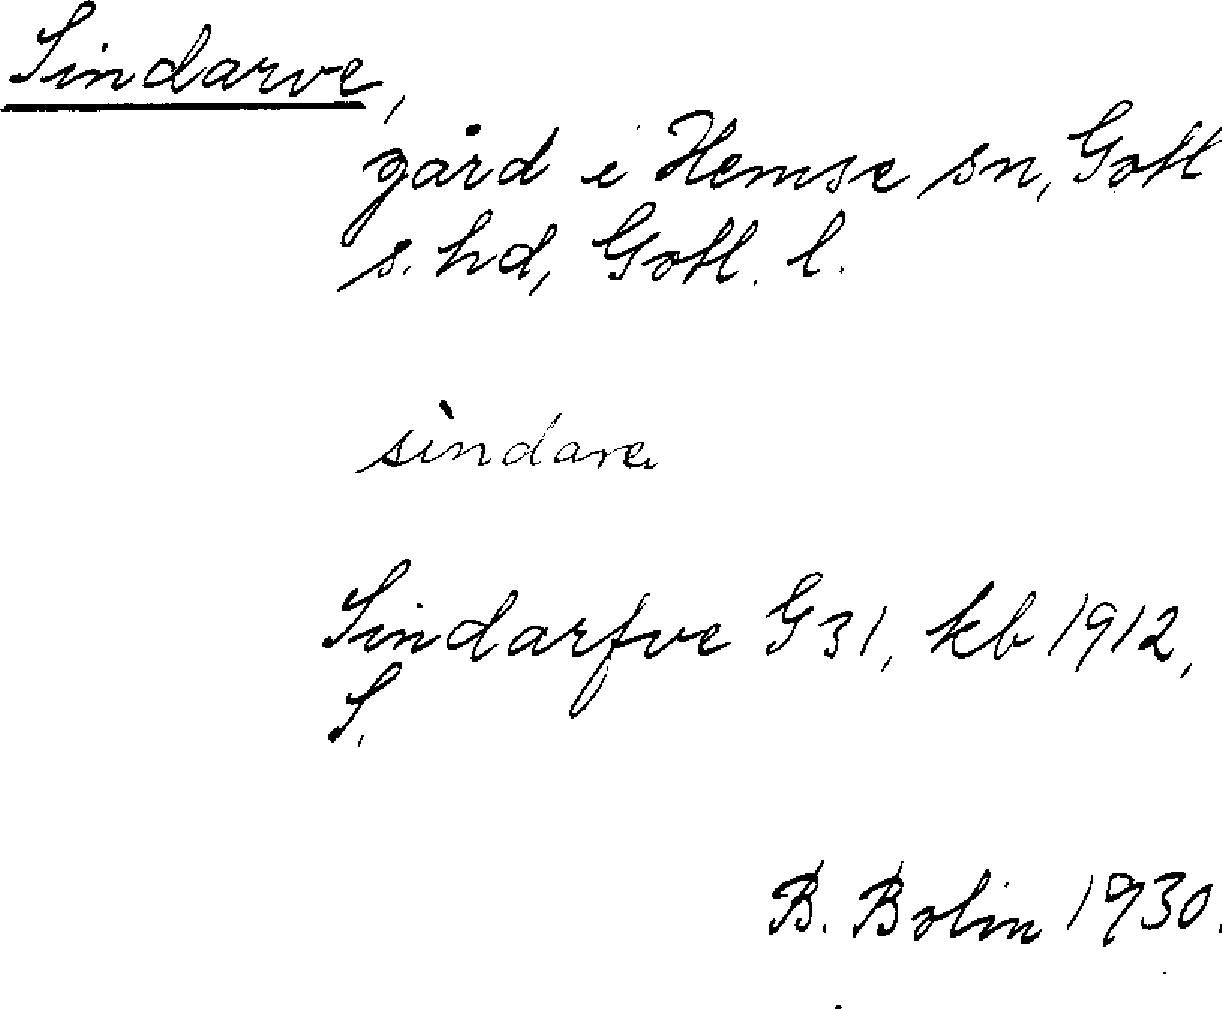 Sindarve,
gård i Hemse sn, Gotl
s. hd, Gotl. l.
sìndare
Sindarfve G 31, kb 1912,
S.
B. Bolin 1930.